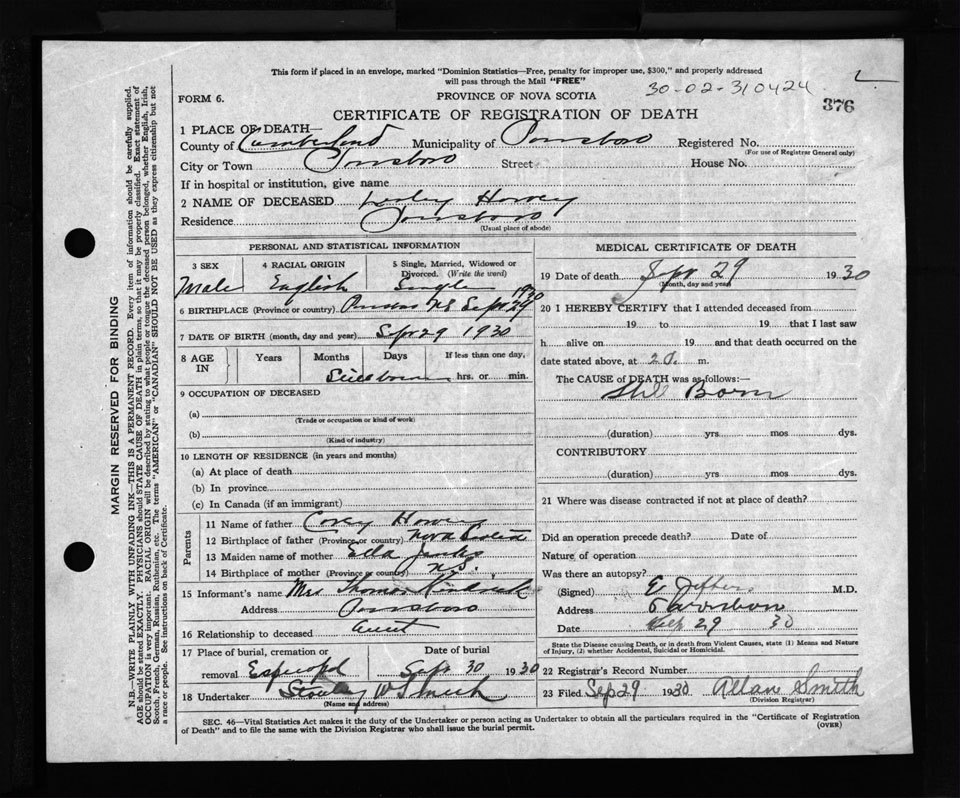 This form if placed in an envelope, marked "Dominion Statistics—Free, penalty for improper use, $300," and properly addressed
will pass through the Mail "FREE"
30-02-310424
376
FORM 6.
PROVINCE OF NOVA SCOTIA
CERTIFICATE OF REGISTRATION OF DEATH
1 PLACE OF DEATH—
County of Cumberland Municipality of Parrsboro Registered No.
(For use of Registrar General only)
City or Town Parrsboro Street House No.
If in hospital or institution, give name
2 NAME OF DECEASED
Residence Parrsboro
(Usual place of abode)
PERSONAL AND STATISTICAL INFORMATION
3 SEX 4 RACIAL ORIGIN 5 Single, Married, Widowed or Divorced. (Write the word)
Male English Single
6 BIRTHPLACE (Province or country) NS Sept 29 1930
7 DATE OF BIRTH (month, day and year) Sept 29 1930
8 AGE IN Years Months Days If less than one day,
Stillborn hrs. or min.
9 OCCUPATION OF DECEASED
(a)
(Trade or occupation or kind of work)
(b)
(Kind of industry)
10 LENGTH OF RESIDENCE (in years and months)
(a) At place of death
(b) In province
(c) In Canada (if an immigrant)
Parents
11 Name of father
12 Birthplace of father (Province or country) Nova Scotia
13 Maiden name of mother Ella Jenks
14 Birthplace of mother (Province or country) N.S.
15 Informant's name Mrs Thomas
Address Parrsboro
16 Relationship to deceased aunt
17 Place of burial, cremation or removal Date of burial
Sept 30 1930
18 Undertaker
(Name and address)
MEDICAL CERTIFICATE OF DEATH
19 Date of death Sept 29 1930
(Month, day and year)
20 I HEREBY CERTIFY that I attended deceased from
19 to 19 that I last saw
h alive on 19 and that death occurred on the
date stated above, at m.
The CAUSE of DEATH was as follows:—
Still Born
(duration) yrs mos dys.
CONTRIBUTORY
(duration) yrs mos dys.
21 Where was disease contracted if not at place of death?
Did an operation precede death? Date of
Nature of operation
Was there an autopsy?
(Signed) M.D.
Address Parrsboro
Date Sept 29 30
State the Disease causing Death, or in death from Violent Causes, state (1) Means and Nature
of Injury, (2) whether Accidental, Suicidal or Homicidal.
22 Registrar's Record Number
23 Filed Sep 29 1930 Allan Smith
(Division Registrar)
SEC. 46—Vital Statistics Act makes it the duty of the Undertaker or person acting as Undertaker to obtain all the particulars required in the "Certificate of Registration
of Death" and to file the same with the Division Registrar who shall issue the burial permit.
(OVER)
MARGIN RESERVED FOR BINDING
N.B.—WRITE PLAINLY WITH UNFADING INK—THIS IS A PERMANENT RECORD. Every item of information should be carefully supplied.
AGE should be stated EXACTLY. PHYSICIANS should STATE CAUSE OF DEATH in plain terms, so that it may be properly classified. Exact statement of
OCCUPATION is very important. RACIAL ORIGIN will be described by stating to what people or tongue the deceased person belonged, whether English, Irish,
Scotch, French, German, Russian, Ruthenian, etc. The terms "AMERICAN" or "CANADIAN" SHOULD NOT BE USED as they express citizenship but not
a race or people. See instructions on back of Certificate.